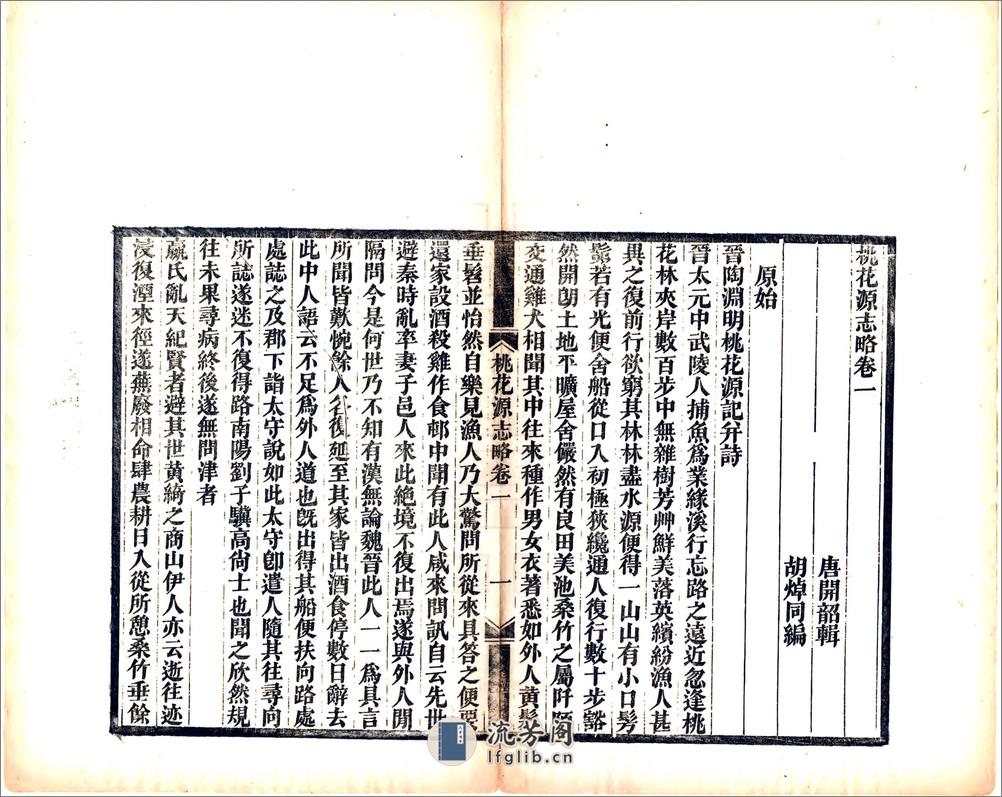 桃花源志略卷一
唐開韶輯
胡焯同編
原始
晉陶淵明桃花源記并詩
晉太元中武陵人捕魚爲業緣溪行忘路之遠近忽逢桃
花林夾岸數百步中無雜樹芳艸鮮美落英繽紛漁人甚
異之復前行欲窮其林林盡水源便得一山山有小口髣
髴若有光便舍船從口入初極狹纔通人復行數十步豁
然開朗土地平曠屋舍儼然有良田美池桑竹之屬阡陌
交通雞犬相聞其中往來種作男女衣著悉如外人黃髮
桃花源志略卷一
一
垂髫並怡然自樂見漁人乃大驚問所從來具答之便要
還家設酒殺雞作食邨中聞有此人咸來問訊自云先世
避秦時亂率妻子邑人來此絶境不復出焉遂與外人間
隔問今是何世乃不知有漢無論魏晉此人一一爲具言
所聞皆歎惋餘人各復延至其家皆出酒食停數日辭去
此中人語云不足爲外人道也旣出得其船便扶向路處
處誌之及郡下詣太守說如此太守卽遣人隨其往尋向
所誌遂迷不復得路南陽劉子驥高尙士也聞之欣然規
往未果尋病終後遂無問津者
嬴氏亂天紀賢者避其世黃綺之商山伊人亦云逝往迹
浸復湮來徑遂蕪廢相命肆農耕日入從所憩桑竹垂餘
流芳閣
lfglib.cn